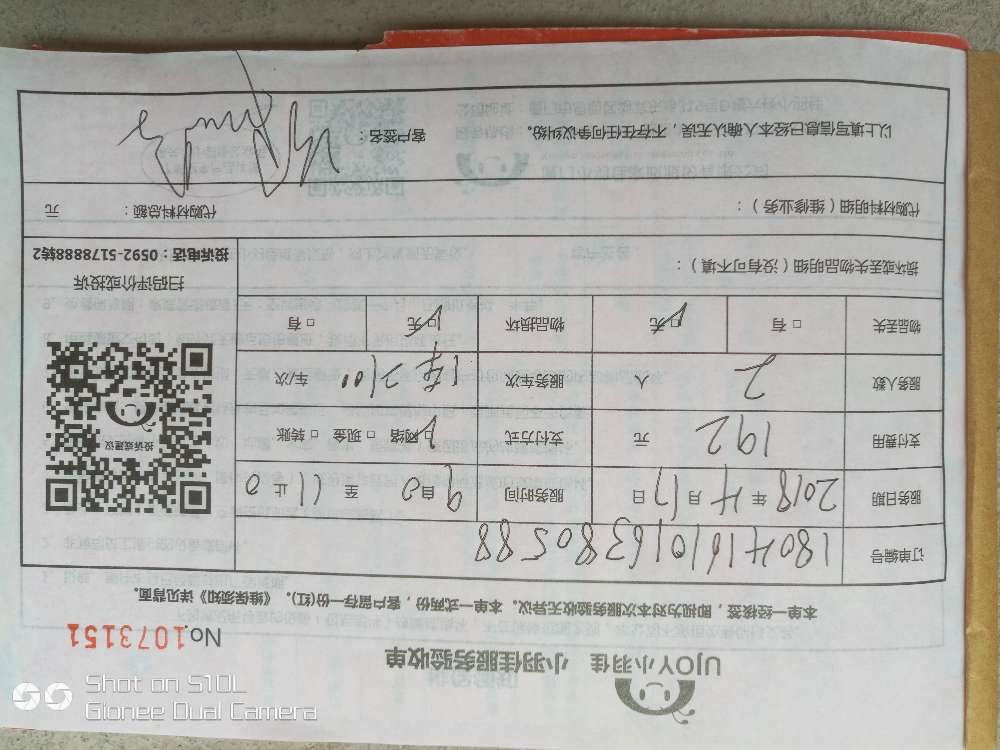 UJOY小羽佳 小羽佳服务验收单
No.1073151
本一单一经核签，即视为对本次服务验收无异议。本单一式两份，客户留存一份(红)。《维保须知》详见背面。
订单编号 180416101638058 8
服务日期 2018年4月17日 服务时间 9 0自 至 11 0止
支付费用 192 元 支付方式 网络 □ 现金 □ 转账
服务人数 2 人 服务车次 车/次
物品丢失 □ 有 □ 无 物品损坏 □ 无 □ 有
投诉或建议
扫码评价或投诉
投诉电话：0592-5178888转2
损坏或丢失物品明细（没有可不填）：
代购材料明细（维修业务）： 代购材料总额： 元
以上填写信息已经本人确认无误，不存在任何争议纠纷。 客户签名：
Shot on S10L
Gionee Dual Camera